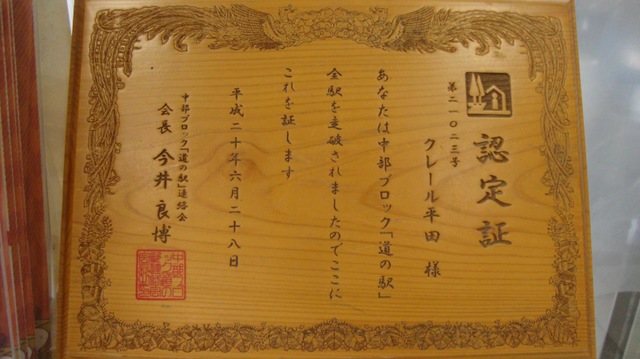 認定証
第二一〇二三号
クレール平田 様
あなたは中部ブロック「道の駅」
全駅を走破されましたのでここに
これを証します
平成二十年六月二十八日
中部ブロック「道の駅」連絡会
会長 今井良博